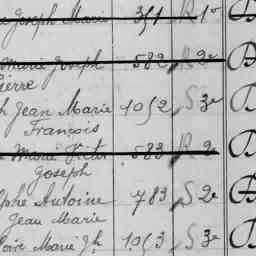 Joseph Marie 351 R 1er
Marie Joseph 582 R 2e
Pierre
Jean Marie 1052 S 3e
François
Marie Victor 583 R 2e
Joseph
Antoine 783 S 2e
Jean Marie
Marie Jh 1053 S 3e